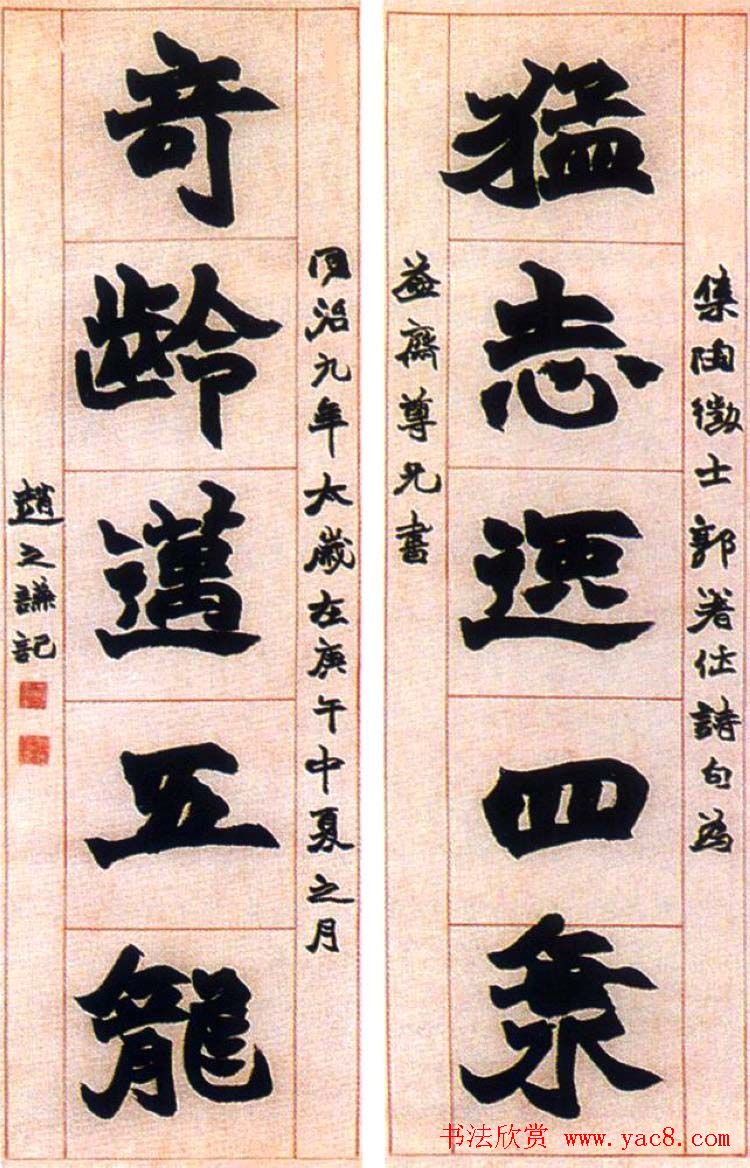 集陶徵士郭著作詩句為
猛志逸四海
益齋尊兄書
同治九年太歲在庚午中夏之月
奇齡邁五龍
趙之謙記
书法欣赏 www.yac8.com